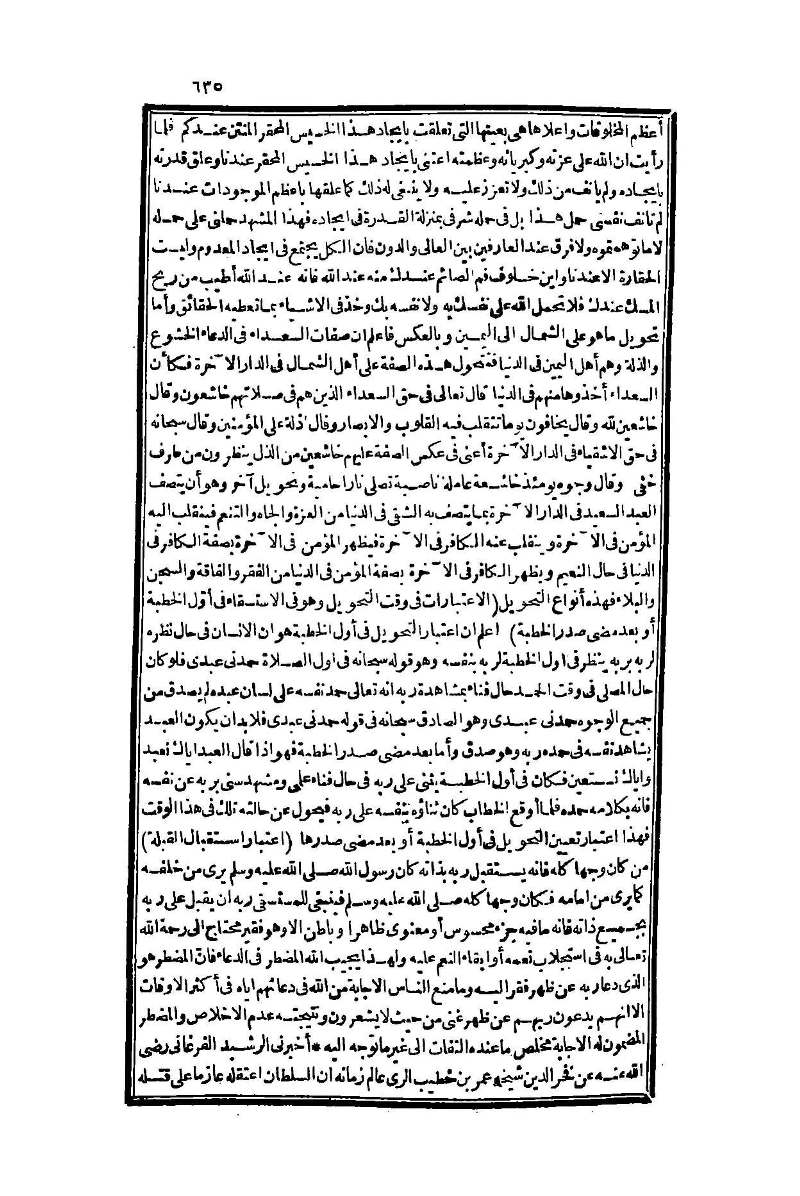 ٦٣٥
أعظم المخلوقات واعلاها هى بعينها التى تعلقت بايجاد هذا الخسيس المحقر المنتن عندكم فلما
رأيت ان الله على عزته وكبريائه وعظمته اعتنى بايجاد هذا الخسيس المحقر عندنا وعلق قدرته
بايجاده ولم يأنف من ذلك ولا تعزز عليه ولا ينبغى له ذلك كما علقها باعظم الموجودات عندنا
لم تانف نفسى حمل هذا بل فى حمله شرفى بمنزلة القدرة فى ايجاده فهذا المشهد حملنى على حمله
لا ما توهمتموه ولا فرق عند العارفين بين العالى والدون فان الكل يجتمع فى ايجاد المعدوم وليست
الحقارة الا عندنا واين خلوف فم الصائم عندك منه عند الله فانه عند الله أطيب من ريح
المسك عندك فلا تحمل الله على نفسك به ولا نفسه بك وخذ فى الاشياء بما تعطيه الحقائق وأما
تحويل ما هو على الشمال الى اليمين وبالعكس فاعلم ان صفات السعداء فى الدعاء الخشوع
والذلة وهم أهل اليمين فى الدنيا فتحول هذه الصفة على أهل الشمال فى الدار الآخرة فكأن
السعداء أخذوها منهم فى الدنيا قال تعالى فى حق السعداء الذين هم فى صلاتهم خاشعون وقال
خاشعين لله وقال يخافون يوما تتقلب فيه القلوب والابصار وقال أذلة على المؤمنين وقال سبحانه
فى حق الاشقياء فى الدار الآخرة أعنى فى عكس الصفة عليهم خاشعين من الذل ينظرون من طرف
خفى وقال وجوه يومئذ خاشعة عاملة ناصبة تصلى نارا حامية وتحويل آخر وهو أن يتصف
العبد السعيد فى الدار الآخرة بما يتصف به الشقى فى الدنيا من العزة والجاه والتنعم فينقلب اليه
المؤمن فى الآخرة وينقلب عنه الكافر فى الآخرة فيظهر المؤمن فى الآخرة بصفة الكافر فى
الدنيا فى حال النعيم ويظهر الكافر فى الآخرة بصفة المؤمن فى الدنيا من الفقر والفاقة والسجن
والبلاء فهذه أنواع التحويل (الاعتبارات فى وقت التحويل وهو فى الاستسقاء فى أول الخطبة
أو بعد مضى صدر الخطبة) اعلم ان اعتبار التحويل فى أول الخطبة هو ان الانسان فى حال نظره
لربه بربه ينظر فى اول الخطبة لربه بنفسه وهو قوله سبحانه فى اول الصلاة حمدنى عبدى فلو كان
حال المصلى فى وقت الحمد حال فناء بمشاهدة ربه انه تعالى حمد نفسه على لسان عبده لم يصدق من
جميع الوجوه حمدنى عبدى وهو الصادق سبحانه فى قوله حمدنى عبدى فلا بد ان يكون العبد
يشاهد نفسه فى حمده ربه وهو صدق وأما بعد مضى صدر الخطبة فهو اذا قال العبد اياك نعبد
واياك نستعين فكان فى أول الخطبة يثنى على ربه فى حال فناء علمى ومشهد سنى بربه عن نفسه
فانه بكلامه حمده فلما أوقع الخطاب كان ثناؤه بنفسه على ربه فيحول عن حالته تلك فى هذا الوقت
فهذا اعتبار تعيين التحويل فى أول الخطبة أو بعد مضى صدرها (اعتبار استقبال القبلة)
من كان وجها كله فانه يستقبل ربه بذاته كان رسول الله صلى الله عليه وسلم يرى من خلفه
كما يرى من امامه فكان وجها كله صلى الله عليه وسلم فينبغى للمستسقى ربه أن يقبل على ربه
بجميع ذاته فانه ما فيه جزء محسوس أو معنوى ظاهرا وباطن الا وهو فقير محتاج الى رحمة الله
تعالى به فى استجلاب نعمه أو ابقاء النعم عليه ولهذا يجيب الله المضطر فى الدعاء فان المضطر هو
الذى دعا ربه عن ظهر فقر اليه وما منع الناس الاجابة من الله فى دعائهم اياه فى أكثر الاوقات
الا انهم يدعون ربهم عن ظهر غنى من حيث لا يشعرون ونتيجته عدم الاخلاص والمضطر
المضمون له الاجابة مخلص ما عنده التفات الى غير ما توجه اليه * أخبرنى الرشيد الفرغانى رضى
الله عنه عن فخر الدين شيخه عمر بن خطيب الرى عالم زمانه ان السلطان اعتقله عازما على قتله